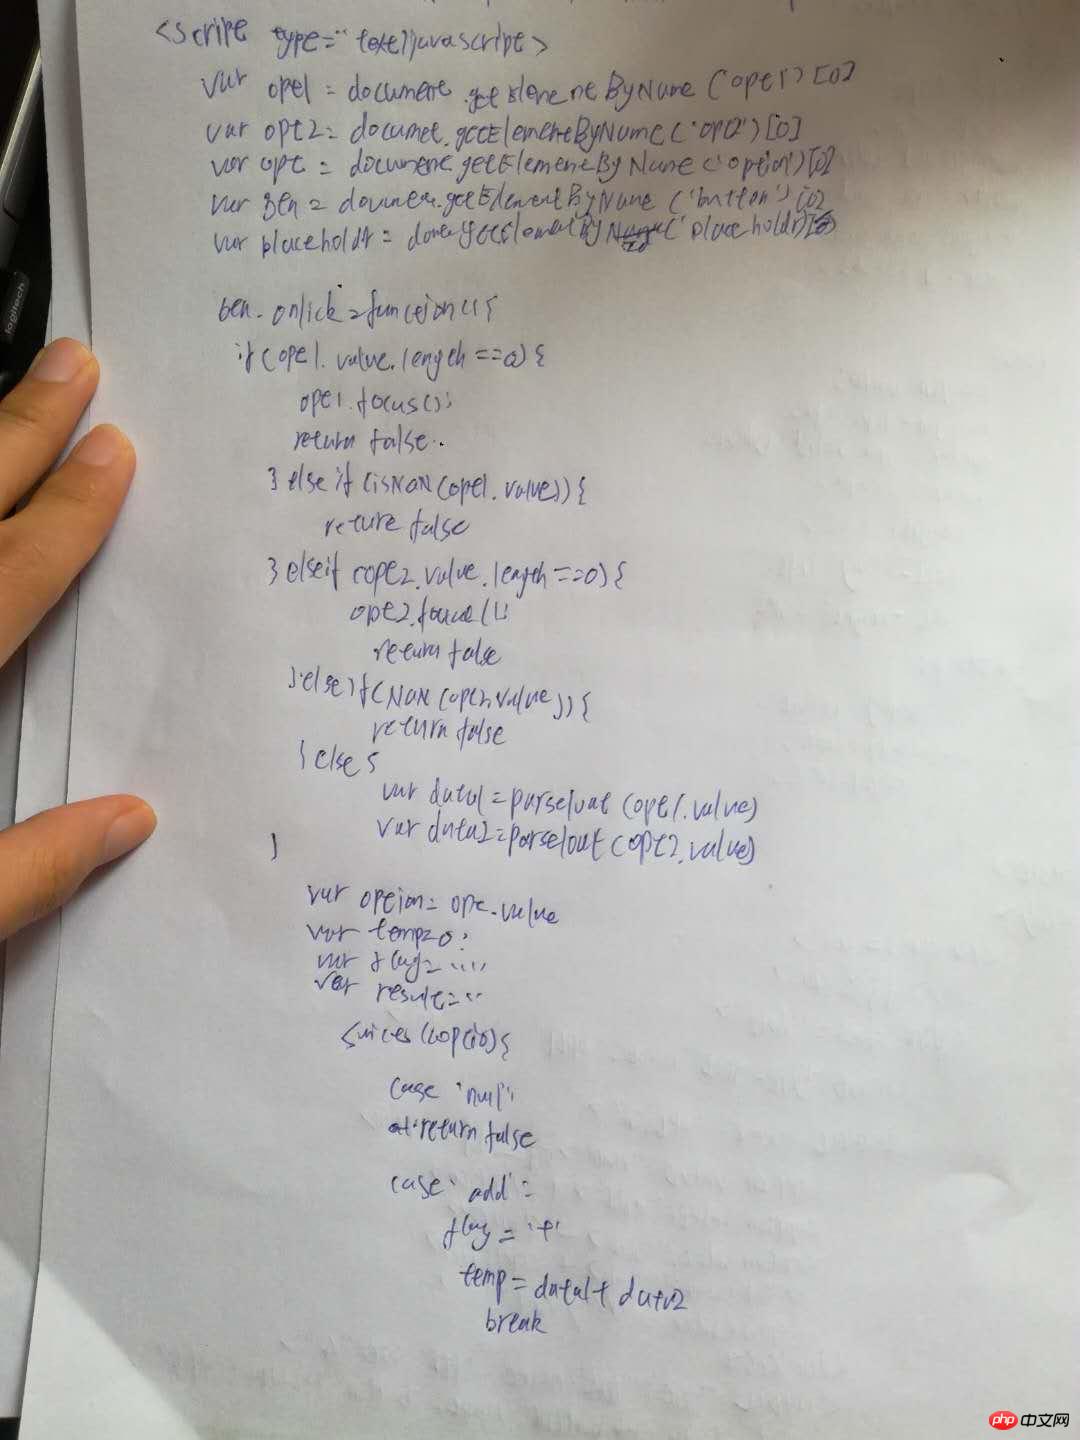 <script type="text/javascript>
var opt1 = document.getElementByName ('opt1')[0]
var opt2 = documet.getElementByName('opt2')[0]
var opt = document.getElementByName('option')[0]
var btn = document.getElementByName('button')[0]
var placeholdr = 'placeholdr)
btn.onlick=function(){
if(opt1.value.length==0){
opt1.focus();
return false.
}else if (isNaN(opt1.value)){
return false
}elseif (opt2.value.length==0){
opt2.
return false
}else if(NaN(opt2.value)){
return false
}else{
var data1=parseloat(opt1.value)
var data2=parseloat(opt2.value)
}
var option=opt.value
var temp=0;
var flag='''';
var result=''
(optio){
case 'null'
return false
case 'add':
flag='+'
temp=data1+data2
break
logitech
php 中文网